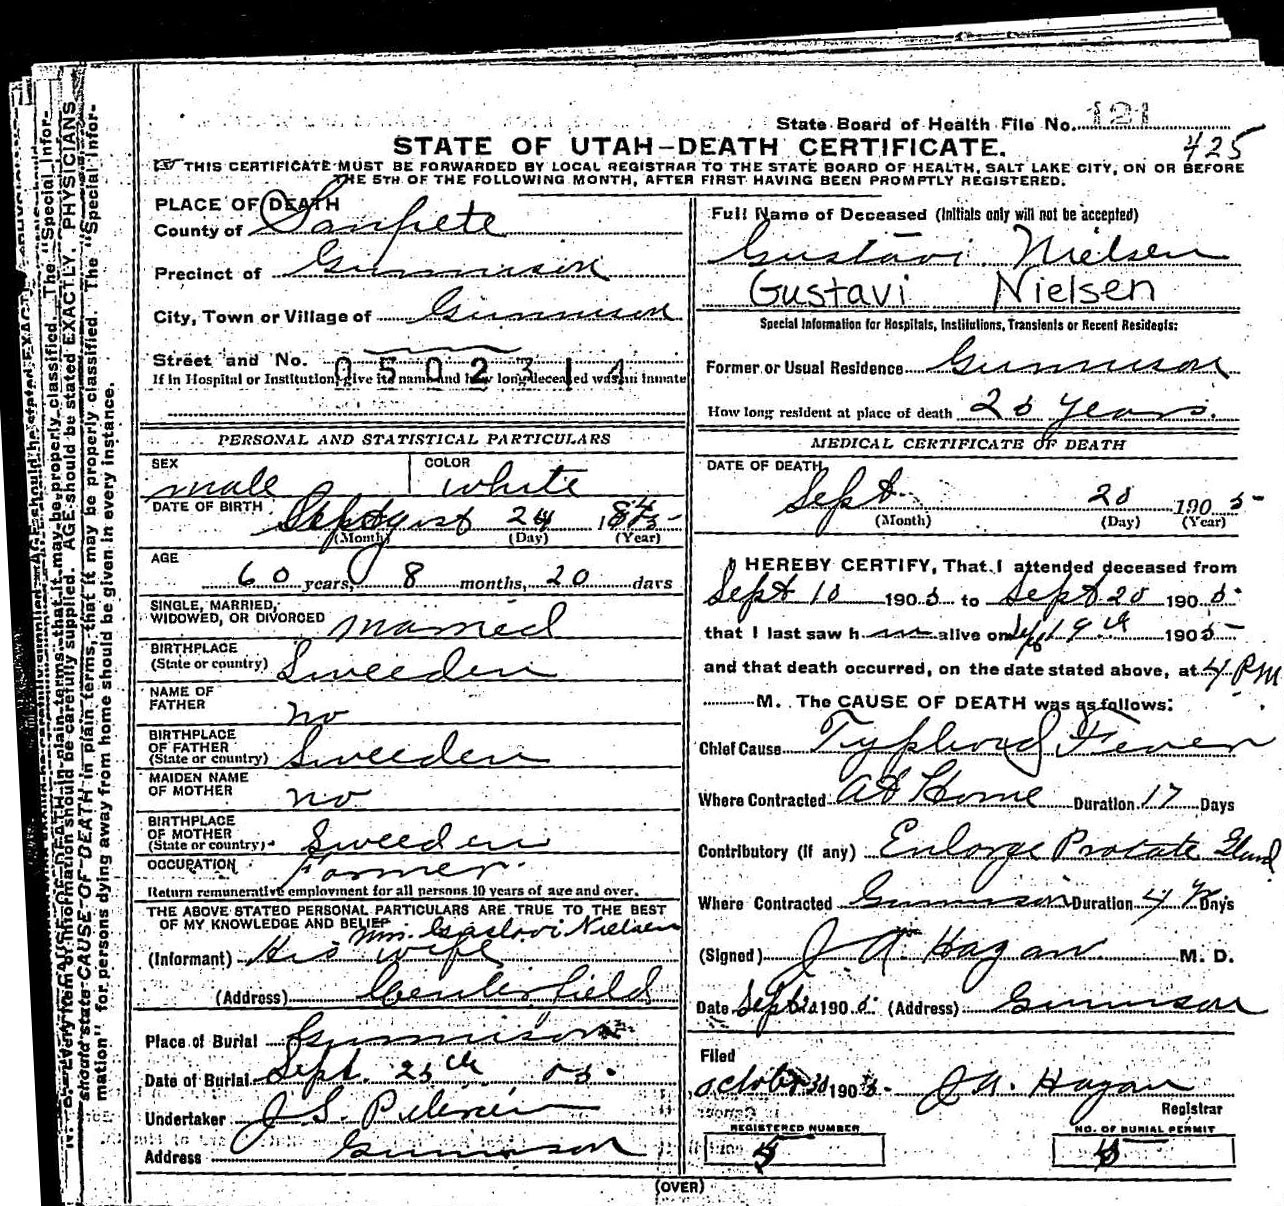 State Board of Health File No. 121
425
STATE OF UTAH—DEATH CERTIFICATE.
THIS CERTIFICATE MUST BE FORWARDED BY LOCAL REGISTRAR TO THE STATE BOARD OF HEALTH, SALT LAKE CITY, ON OR BEFORE
THE 5TH OF THE FOLLOWING MONTH, AFTER FIRST HAVING BEEN PROMPTLY REGISTERED.
PLACE OF DEATH
County of Sanpete
Precinct of Gunnison
City, Town or Village of Gunnison
Street and No. 0502314
If in Hospital or Institution, give its name and how long deceased was an inmate
PERSONAL AND STATISTICAL PARTICULARS
SEX male COLOR white
DATE OF BIRTH 24
(Month) (Day) (Year)
AGE 60 years, 8 months, 20 days
SINGLE, MARRIED,
WIDOWED, OR DIVORCED married
BIRTHPLACE
(State or country) Sweeden
NAME OF
FATHER no
BIRTHPLACE
OF FATHER
(State or country) Sweeden
MAIDEN NAME
OF MOTHER no
BIRTHPLACE
OF MOTHER
(State or country) Sweeden
OCCUPATION Farmer
Return remunerative employment for all persons 10 years of age and over.
THE ABOVE STATED PERSONAL PARTICULARS ARE TRUE TO THE BEST
OF MY KNOWLEDGE AND BELIEF
Mrs. Gustavi Nielsen
(Informant) His wife
(Address) Centerfield
Place of Burial Gunnison
Date of Burial Sept. 05.
Undertaker J. S.
Address Gunnison
Full Name of Deceased (Initials only will not be accepted)
Gustavi Nielsen
Gustavi Nielsen
Special Information for Hospitals, Institutions, Transients or Recent Residents:
Former or Usual Residence Gunnison
How long resident at place of death years.
MEDICAL CERTIFICATE OF DEATH
DATE OF DEATH
Sept 20 1905
(Month) (Day) (Year)
I HEREBY CERTIFY, That I attended deceased from
Sept 10 1905 to Sept 20 1905
that I last saw him alive on 19th 1905
and that death occurred, on the date stated above, at 4 PM
M. The CAUSE OF DEATH was as follows:
Chief Cause Typhoid Fever
Where Contracted At Home Duration 17 Days
Contributory (if any) Enlarge Protate Gland
Where Contracted Gunnison Duration 4 Days
(Signed) J A. Hagan M. D.
Date Sept 1905 (Address) Gunnison
Filed
October 1905 J A. Hagan
Registrar
REGISTERED NUMBER
5
NO. OF BURIAL PERMIT
(OVER)
AGE should be stated EXACTLY. PHYSICIANS
should state CAUSE OF DEATH in plain terms, that it may be properly classified. The "Special Infor-
mation" for persons dying away from home should be given in every instance.